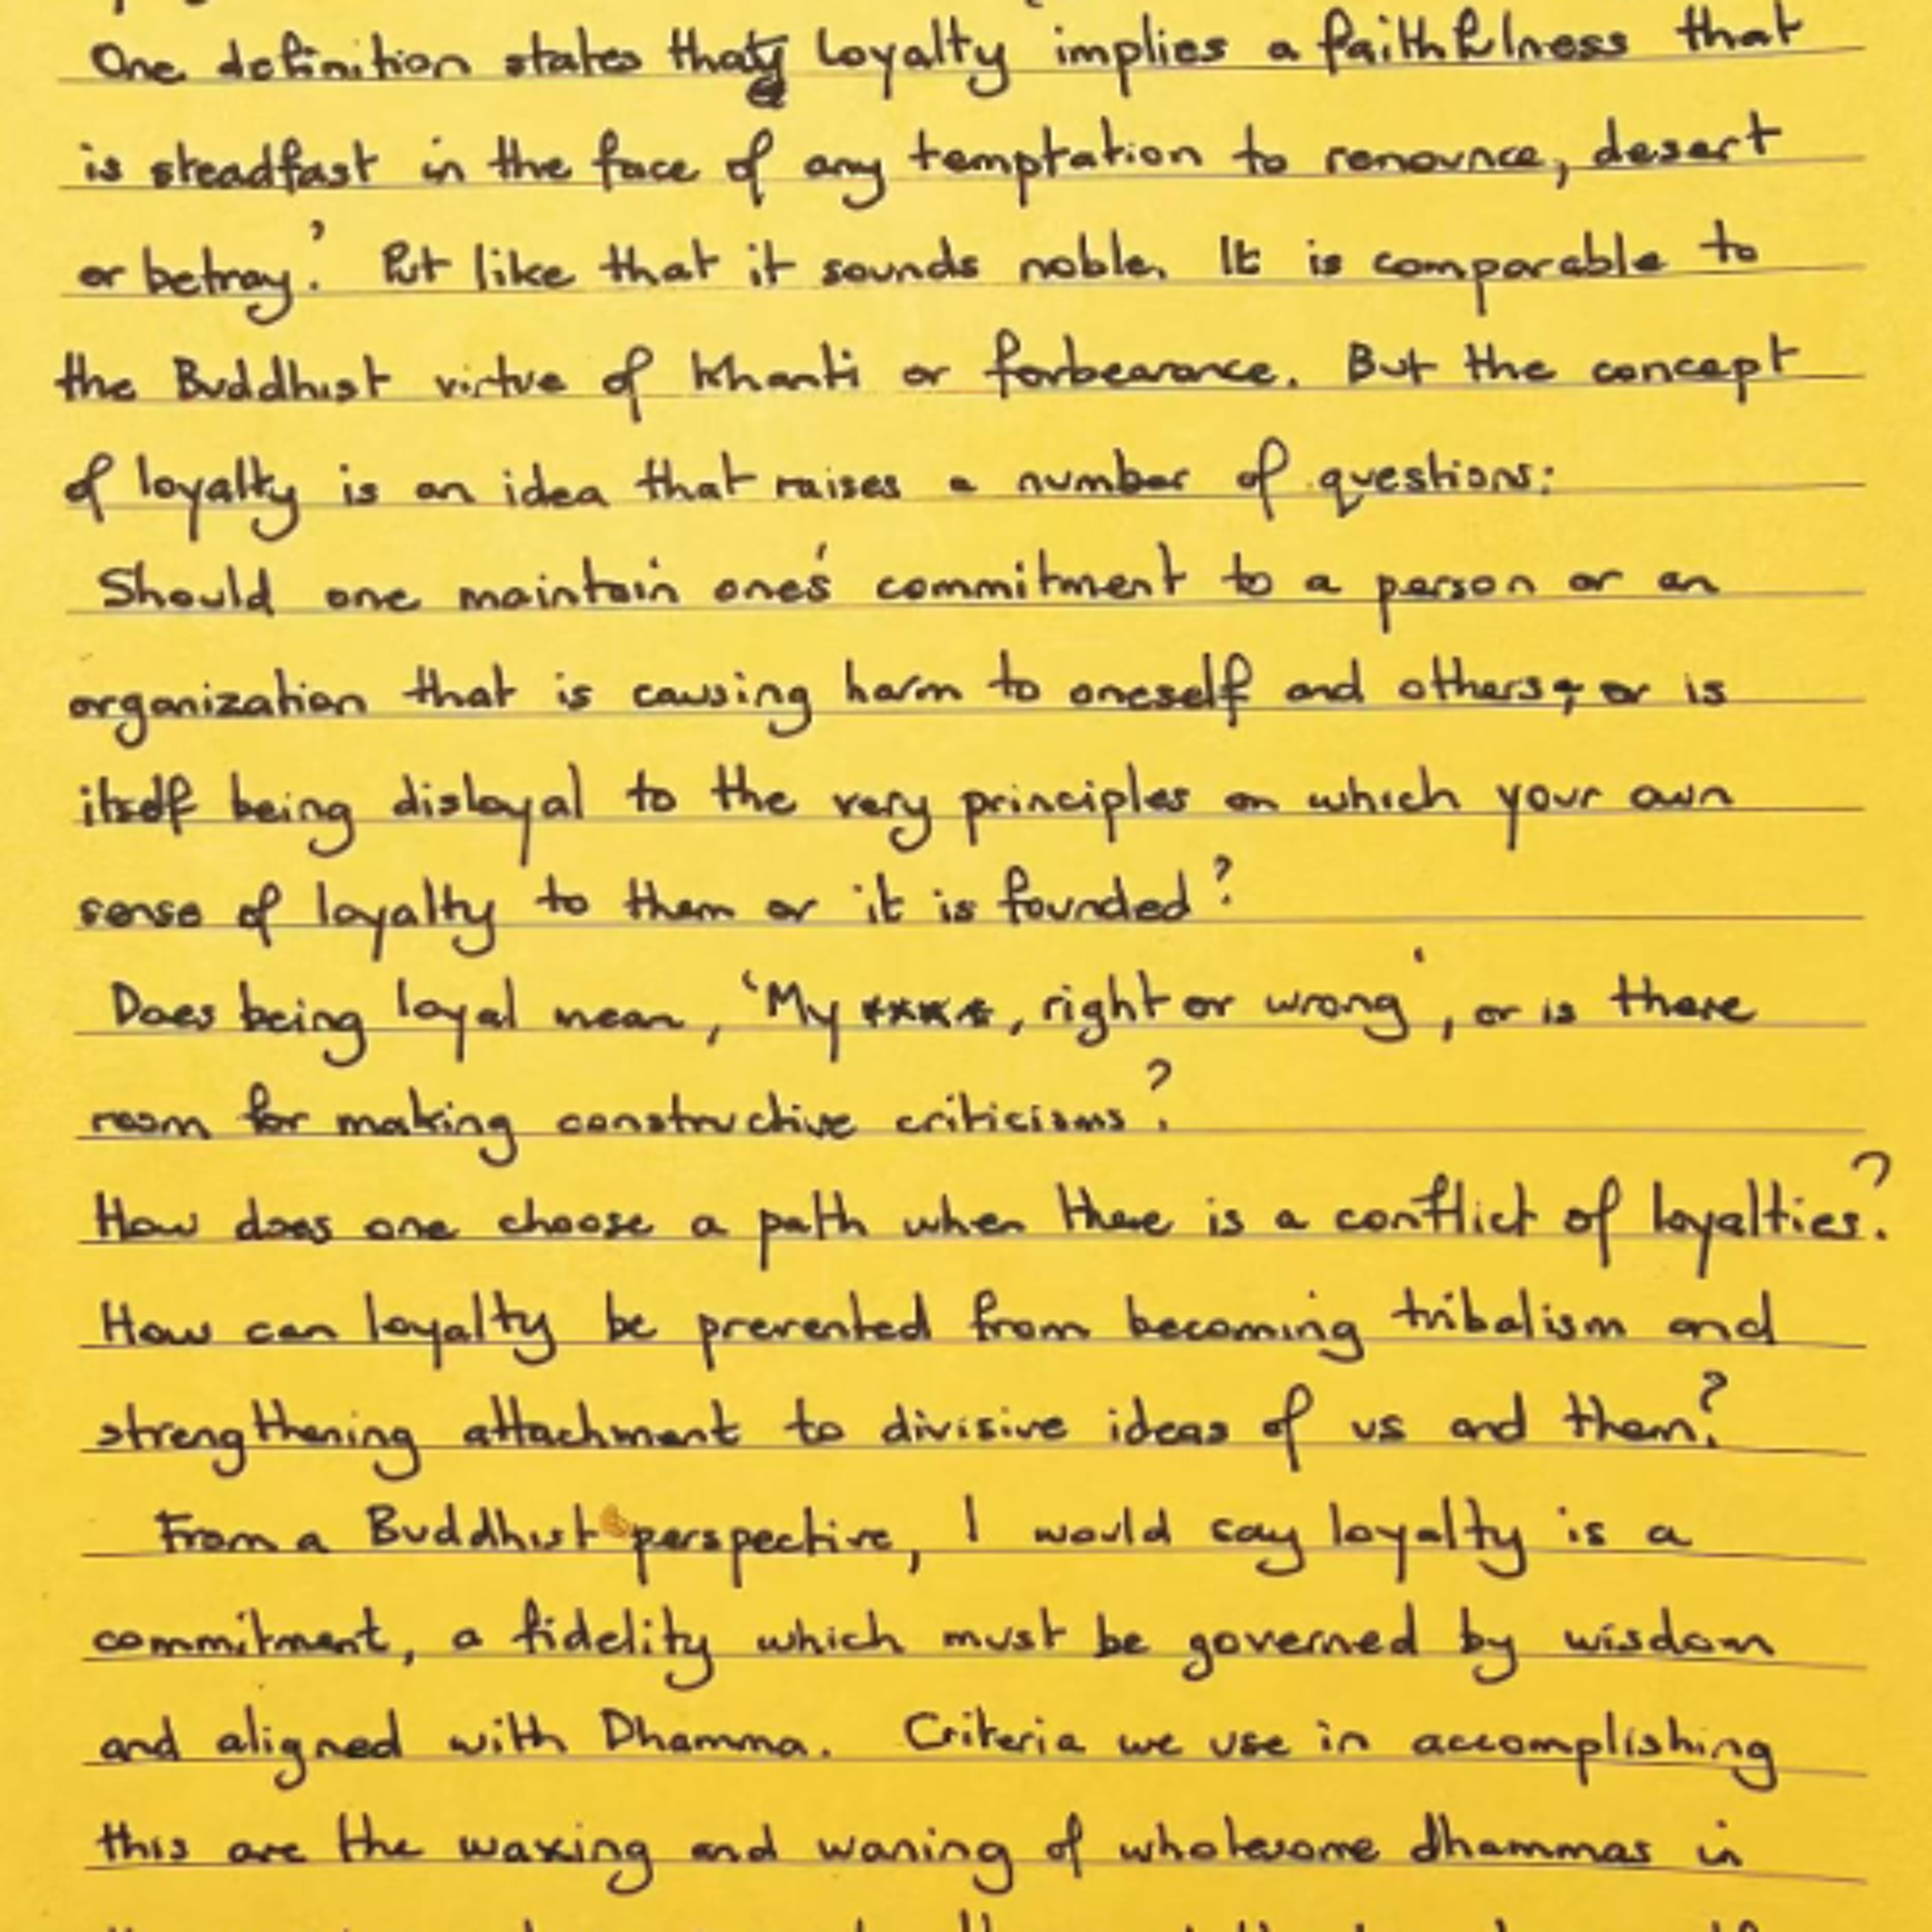 One definition states that loyalty implies a faithfulness that
is steadfast in the face of any temptation to renounce, desert
or betray.’ Put like that it sounds noble. It is comparable to
the Buddhist virtue of khanti or forbearance. But the concept
of loyalty is an idea that raises a number of questions:
Should one maintain one's commitment to a person or an
organization that is causing harm to oneself and others, or is
itself being disloyal to the very principles on which your own
sense of loyalty to them or it is founded?
Does being loyal mean, ‘My xxxx, right or wrong’, or is there
room for making constructive criticisms?
How does one choose a path when there is a conflict of loyalties?
How can loyalty be prevented from becoming tribalism and
strengthening attachment to divisive ideas of us and them?
From a Buddhist perspective, I would say loyalty is a
commitment, a fidelity which must be governed by wisdom
and aligned with Dhamma. Criteria we use in accomplishing
this are the waxing and waning of wholesome dhammas in